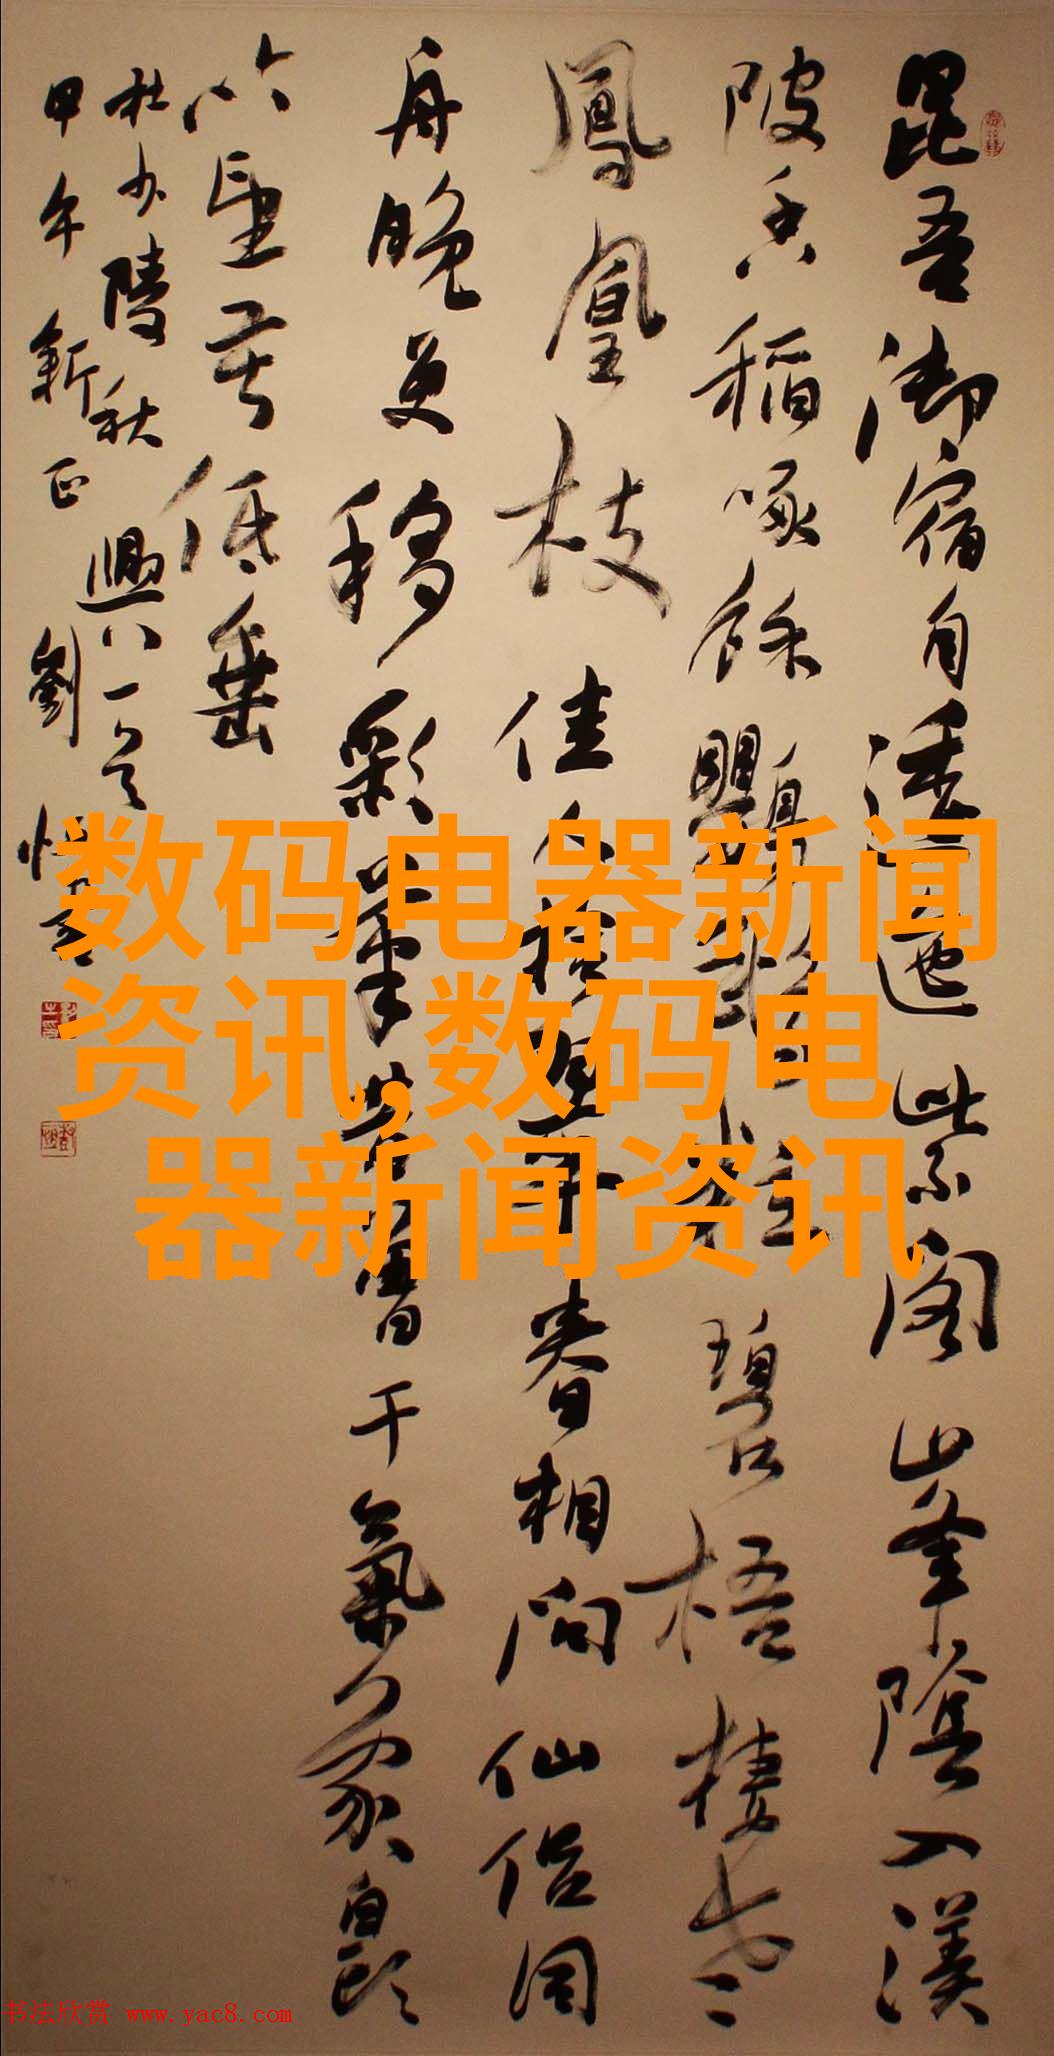 昆吾御宿自逶迤紫閣山峯陰入渼
陂香稻啄餘鸚鵡粒碧梧棲老
鳳凰枝佳人拾翠春相問仙侣同
舟晚更移彩筆昔曾干氣象白頭
吟望苦低垂
杜少陵秋興八一首
甲午新正劉
数码电器新闻
资讯,数码电
器新闻资讯
书法欣赏 www.yac8.com